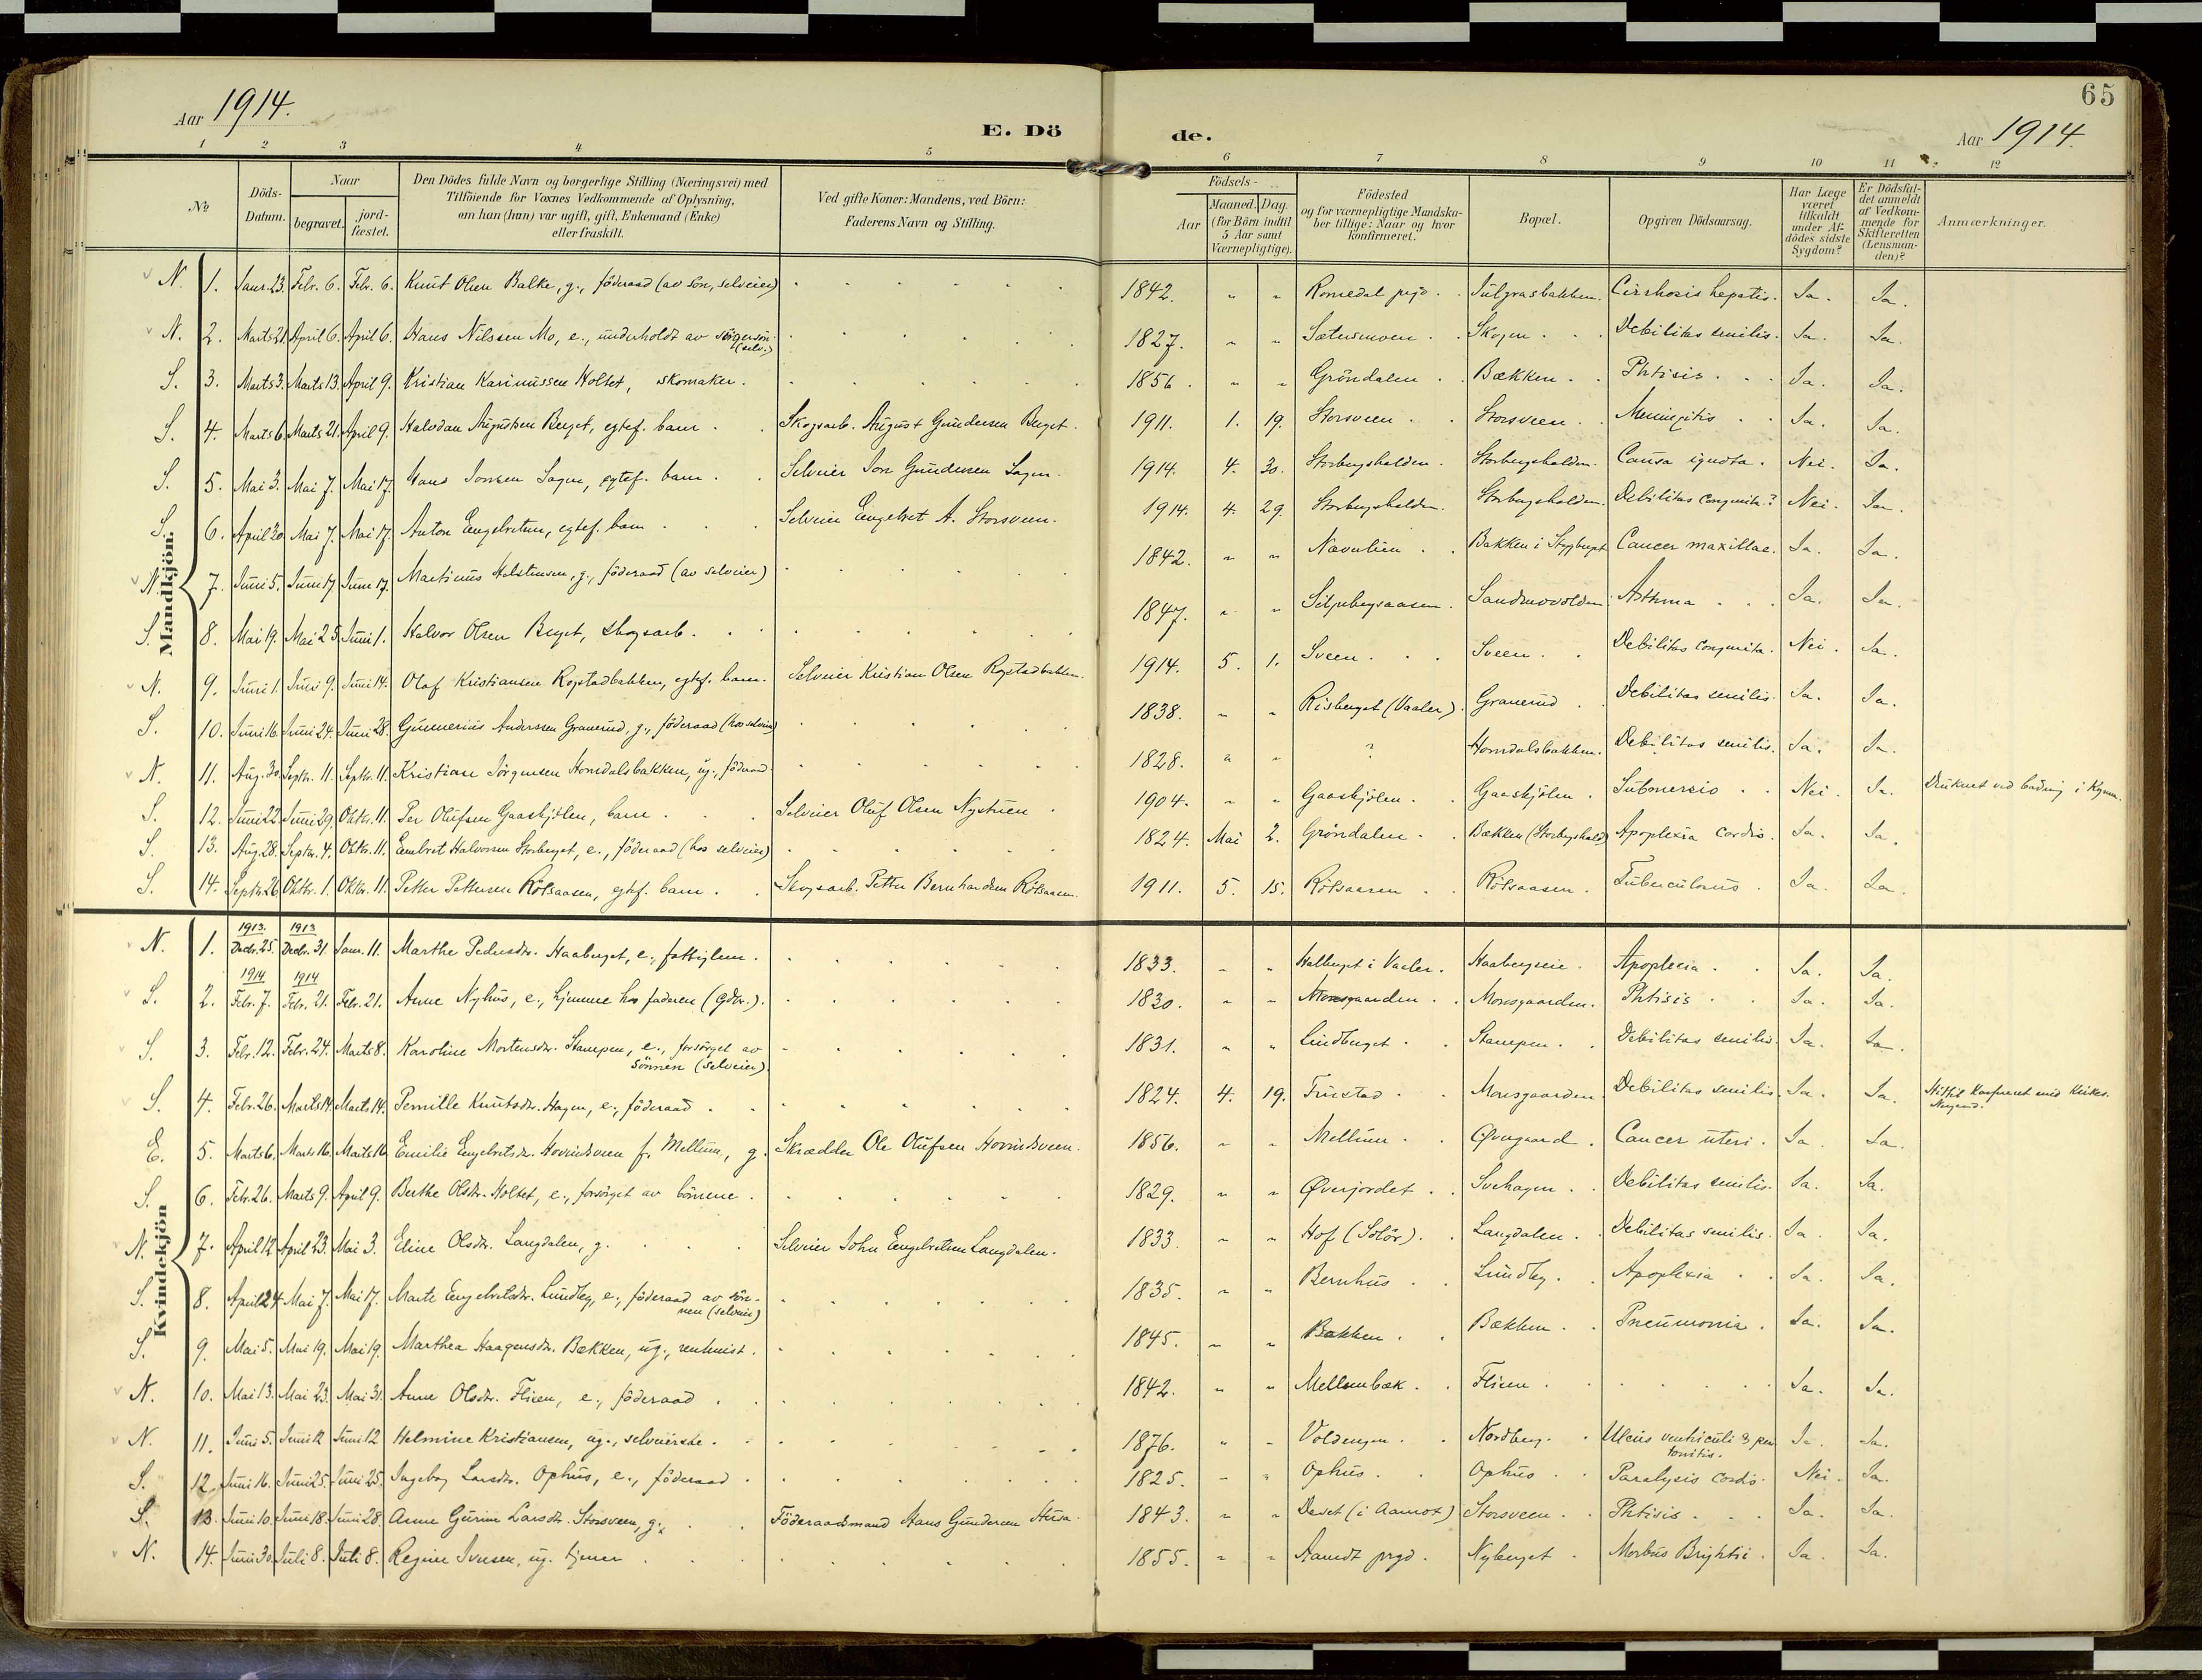 65
Aar 1914.
E. Döde.
Aar 1914.
1 2 3 4 5 6 7 8 9 10 11 12
No
Döds-Datum.
Naar
begravet.
jord-fæstet.
Den Dödes fulde Navn og borgerlige Stilling (Næringsvei) med
Tilföiende for Voxnes Vedkommende af Oplysning,
om han (hun) var ugift, gift, Enkemand (Enke)
eller fraskilt.
Ved gifte Koner: Mandens, ved Börn:
Faderens Navn og Stilling.
Födsels-
Aar
Maaned. Dag.
(for Börn indtil
5 Aar samt
Værnepligtige).
Födested
og for værnepligtige Mandska-
ber tillige: Naar og hvor
konfirmeret.
Bopæl.
Opgiven Dödsaarsag.
Har Læge
været
tilkaldt
under Af-
dödes sidste
Sygdom?
Er Dödsfal-
det anmeldt
af Vedkom-
mende for
Skifteretten
(Lensman-
den)?
Anmærkninger.
Mandkjön.
N. 1. Janr. 23. Febr. 6. Febr. 6. Knut Olsen Balke, g., föderaad (av sön, selveier) 1842. " " Romedal prgd. Julgrasbakken. Cirrhosis hepatis. Ja. Ja.
N. 2. Marts 21. April 6. April 6. Hans Nilssen Mo, e., underholdt av (selv.) 1827. " " Sætermoen. Skogen. Debilitas senilis. Ja. Ja.
S. 3. Marts 3. Marts 13. April 9. Kristian Karinussen Holtet, skomaker. 1856. " " Gröndalen. Bækken. Phtisis. Ja. Ja.
S. 4. Marts 6. Marts 21. April 9. Halvdan Augustsen Berget, egtef. barn. Skogsarb. August Gundersen Berget. 1911. 1. 19. Storsveen. Storsveen. Meningitis. Ja. Ja.
S. 5. Mai 3. Mai 7. Mai 17. Hans Jonsen Sagen, egtef. barn. Selveier Jon Gundersen Sagen. 1914. 4. 30. Storbergshalden. Storbergshalden. Causa ignota. Nei. Ja.
S. 6. April 30. Mai 7. Mai 17. Anton Engebretsen, egtef. barn. Selveier Engebret A. Storsveen. 1914. 4. 29. Storbergshalden. Storbergshalden. Debilitas congenita? Nei. Ja.
N. 7. Juni 5. Juni 17. Juni 17. Martinus Halstensen, g., föderaad (av selveier) 1842. " " Næverlien. Bakken i Stygberget Cancer maxillae. Ja. Ja.
S. 8. Mai 19. Mai 25. Juni 1. Halvor Olsen Berget, skogsarb. 1847. " " Siljubergsaasen. Sandmovolden. Asthma. Ja. Ja.
N. 9. Juni 1. Juni 9. Juni 14. Olaf Kristiansen Rogstadbakken, egtef. barn. Selveier Kristian Olsen Rogstadbakken. 1914. 5. 1. Sveen. Sveen. Debilitas congenita. Nei. Ja.
S. 10. Juni 16. Juni 24. Juni 28. Gunnerius Anderssen Granerud, g., föderaad (hos selveier) 1838. " " Risberget (Vaaler). Granerud. Debilitas senilis. Ja. Ja.
N. 11. Aug. 30. Septbr. 11. Septbr. 11. Kristian Jörgensen Horndalsbakken, ug., föderaad. 1828. " " ? Horndalsbakken. Debilitas senilis. Ja. Ja.
S. 12. Juni 22. Juni 29. Oktbr. 11. Per Olufsen Gaaskjölen, barn. Selveier Oluf Olsen Nystuen. 1904. " " Gaaskjölen. Gaaskjölen. Submersio. Nei. Ja. Druknet ved badning i Kynna.
S. 13. Aug. 28. Septbr. 4. Oktbr. 11. Embret Halvorsen Storberget, e., föderaad (hos selveier) 1824. Mai 2. Gröndalen. Bækken (Storbergshald) Apoplexia cordis. Ja. Ja.
S. 14. Septbr. 26. Oktbr. 1. Oktbr. 11. Petter Pettersen Röksaasen, egtef. barn. Skogsarb. Petter Bernhardsen Röksaasen. 1911. 5. 15. Röksaasen. Röksaasen. Tuberculosis. Ja. Ja.
Kvindekjön
N. 1. 1913. Decbr. 25. 1913 Decbr. 31. Janr. 11. Marthe Pedersdr. Haaberget, e., fattiglem. 1833. " " Halberget i Vaaler. Haabergseie. Apoplexia. Ja. Ja.
S. 2. 1914 Febr. 7. 1914 Febr. 21. Febr. 21. Anne Nyhus, e., hjemme hos faderen (gdbr.). 1830. " " Monsgaarden. Monsgaarden. Phtisis. Ja. Ja.
S. 3. Febr. 12. Febr. 24. Marts 8. Karoline Mortensdr. Stampen, e., forsörget av
sönnen (selveier). 1831. " " Lindberget. Stampen. Debilitas senilis. Ja. Ja.
S. 4. Febr. 26. Marts 14. Marts 14. Pernille Knutsdr. Hagen, e., föderaad. 1824. 4. 19. Frustad. Monsgaarden. Debilitas senilis. Ja. Ja.
E. 5. Marts 6. Marts 16. Marts 16. Emilie Engebretsdr. Hovindsveen f. Mellum, g. Skrædder Ole Olufsen Hovindsveen. 1856. " " Mellum. Øvergaard. Cancer uteri. Ja. Ja.
S. 6. Febr. 26. Marts 9. April 9. Berthe Olsdr. Holtet, e., forsörget av börnene. 1829. " " Øverjordet. Svehagen. Debilitas senilis. Ja. Ja.
N. 7. April 12. April 23. Mai 3. Eline Olsdr. Langdalen, g. Selveier John Engebretsen Langdalen. 1833. " " Hof (Solör). Langdalen. Debilitas senilis. Ja. Ja.
S. 8. April 24. Mai 7. Mai 17. Marte Engebretsdr. Lundby, e., föderaad av sön-
nen (selveier) 1835. " " Bernhus. Lundby. Apoplexia. Ja. Ja.
S. 9. Mai 5. Mai 19. Mai 19. Marthea Haagensdr. Bækken, ug., renkuist. 1845. " " Bækken. Bækken. Pneumonia. Ja. Ja.
N. 10. Mai 13. Mai 23. Mai 31. Anne Olsdr. Flisen, e., föderaad. 1842. " " Mellembæk. Flisen. Ja. Ja.
N. 11. Juni 5. Juni 12. Juni 12. Helmine Kristiansen, ug., selveierske. 1876. " " Voldengen. Nordberg. Ulcus ventriculi & peri
tonitis. Ja. Ja.
S. 12. Juni 16. Juni 25. Juni 25. Ingeborg Larsdr. Ophus, e., föderaad. 1825. " " Ophus. Ophus. Paralysis cordis. Nei. Ja.
S. 13. Juni 10. Juni 18. Juni 28. Anne Gurine Larsdr. Storsveen, g. Föderaadsmand Hans Gundersen 1843. " " Deset (i Aamot) Storsveen. Phtisis. Ja. Ja.
N. 14. Juni 30. Juli 8. Juli 8. Regine Iversen, ug. tjener. 1855. " " Aamot prgd. Nyberget. Morbus Brightii. Ja. Ja.